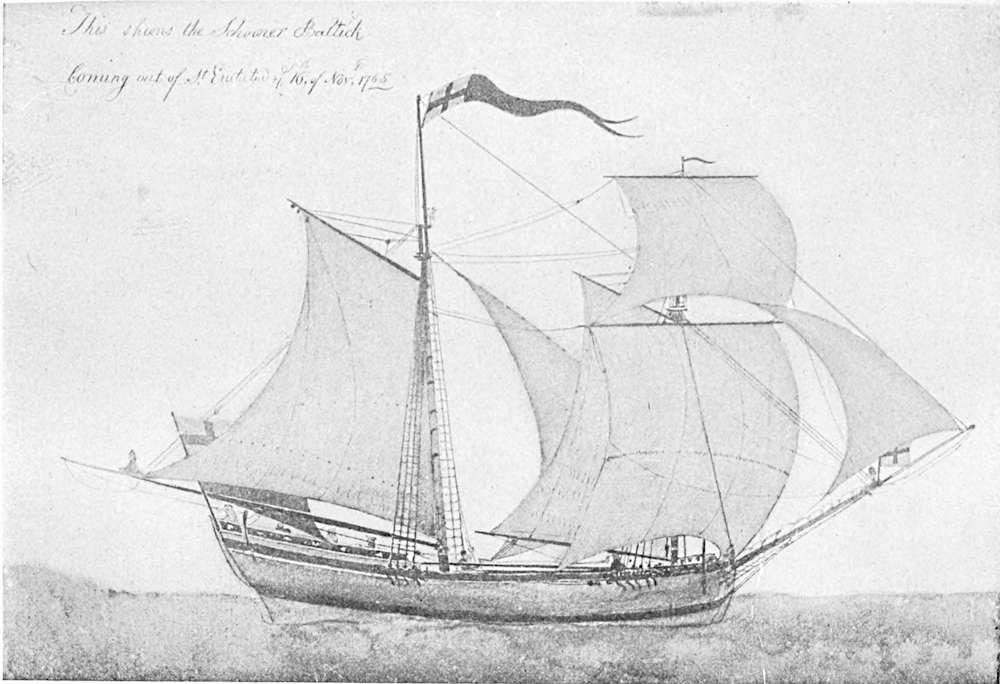 This shews the Schooner Baltick
Coming out of St Eustatia ye 16th of Novr 1765